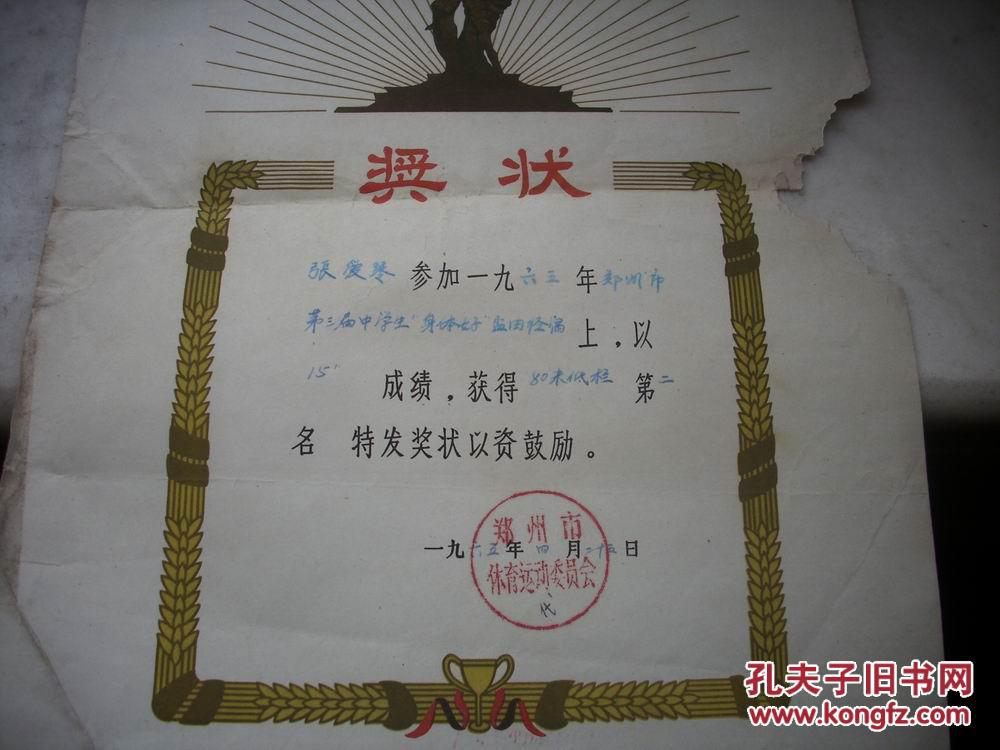 奨状
張愛琴 参加一九六五年郑州市
第三届中学生"身体好"盃田径
上，以
15"成绩，获得80米低栏第二
名 特发奖状以资鼓励。
郑州市
一九六五年四月二十五日
体育运动委员会
代
孔夫子旧书网
www.kongfz.com